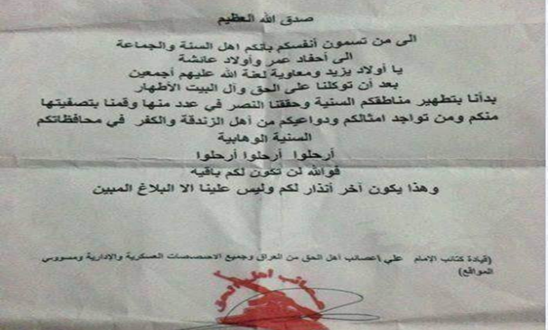 صدق الله العظيم
الى من تسمون أنفسكم بانكم اهل السنة والجماعة
الى أحفاد عمر وأولاد عائشة
يا أولاد يزيد ومعاوية لعنة الله عليهم أجمعين
بعد أن توكلنا على الحق وآل البيت الأطهار
بدأنا بتطهير مناطقكم السنية وحققنا النصر في عدد منها وقمنا بتصفيتها
منكم ومن تواجد امثالكم ودواعيكم من أهل الزندقة والكفر في محافظاتكم
السنية الوهابية
أرحلوا أرحلوا أرحلوا
فوالله لن تكون لكم باقيه
وهذا يكون آخر أنذار لكم وليس علينا الا البلاغ المبين
(قيادة كتائب الإمام علي اعصائب أهل الحق من العراق وجميع الاختصاصات العسكرية والإدارية ومسؤولي
المواقع)
عصائب اهل الحق